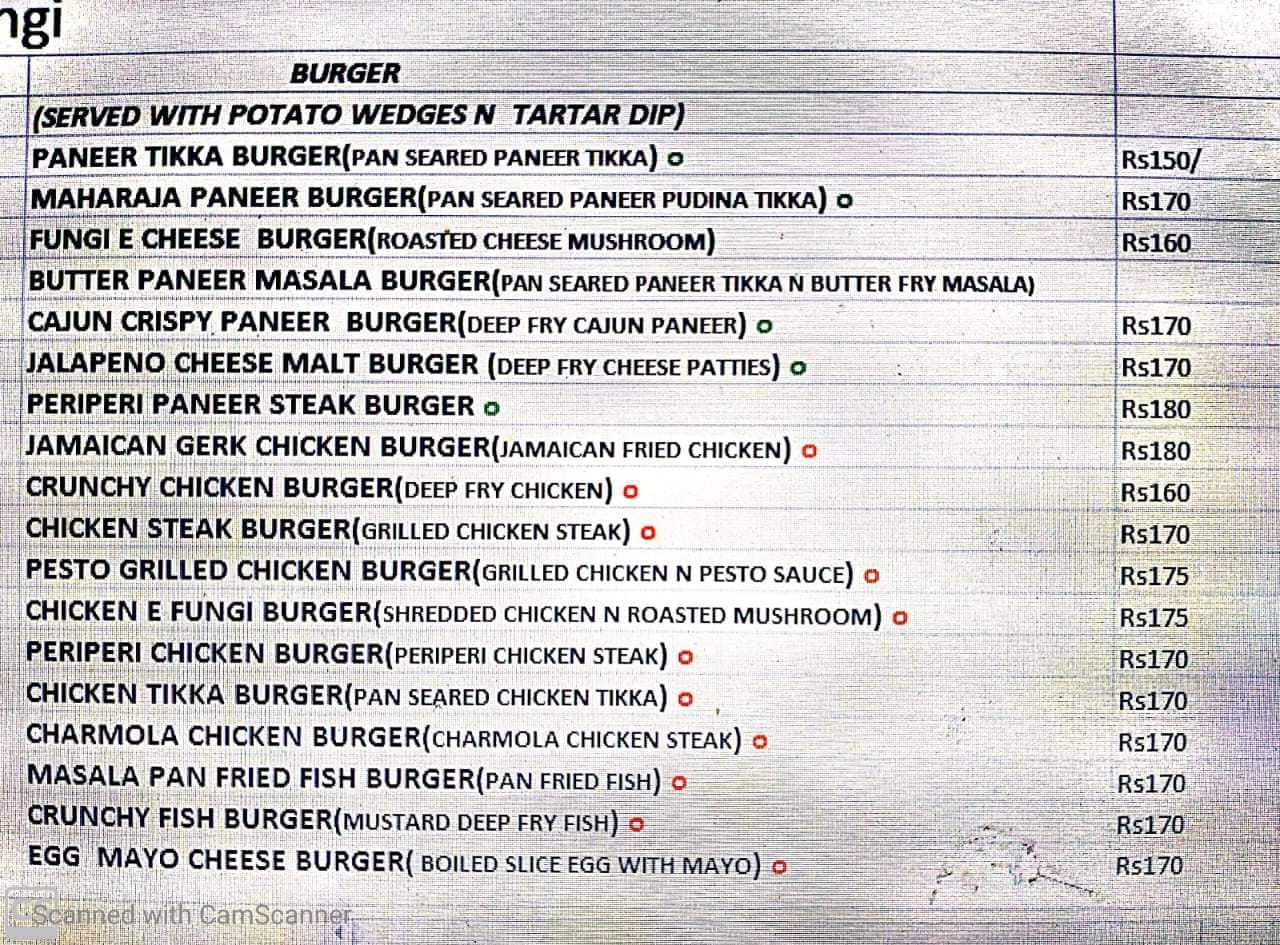 ngi
BURGER
(SERVED WITH POTATO WEDGES N TARTAR DIP)
PANEER TIKKA BURGER(PAN SEARED PANEER TIKKA) Rs150/
MAHARAJA PANEER BURGER(PAN SEARED PANEER PUDINA TIKKA) Rs170
FUNGI E CHEESE BURGER(ROASTED CHEESE MUSHROOM) Rs160
BUTTER PANEER MASALA BURGER(PAN SEARED PANEER TIKKA N BUTTER FRY MASALA)
CAJUN CRISPY PANEER BURGER(DEEP FRY CAJUN PANEER) Rs170
JALAPENO CHEESE MALT BURGER (DEEP FRY CHEESE PATTIES) Rs170
PERIPERI PANEER STEAK BURGER Rs180
JAMAICAN GERK CHICKEN BURGER(JAMAICAN FRIED CHICKEN) Rs180
CRUNCHY CHICKEN BURGER(DEEP FRY CHICKEN) Rs160
CHICKEN STEAK BURGER(GRILLED CHICKEN STEAK) Rs170
PESTO GRILLED CHICKEN BURGER(GRILLED CHICKEN N PESTO SAUCE) Rs175
CHICKEN E FUNGI BURGER(SHREDDED CHICKEN N ROASTED MUSHROOM) Rs175
PERIPERI CHICKEN BURGER(PERIPERI CHICKEN STEAK) Rs170
CHICKEN TIKKA BURGER(PAN SEARED CHICKEN TIKKA) Rs170
CHARMOLA CHICKEN BURGER(CHARMOLA CHICKEN STEAK) Rs170
MASALA PAN FRIED FISH BURGER(PAN FRIED FISH) Rs170
CRUNCHY FISH BURGER(MUSTARD DEEP FRY FISH) Rs170
EGG MAYO CHEESE BURGER( BOILED SLICE EGG WITH MAYO) Rs170
Scanned with CamScanner